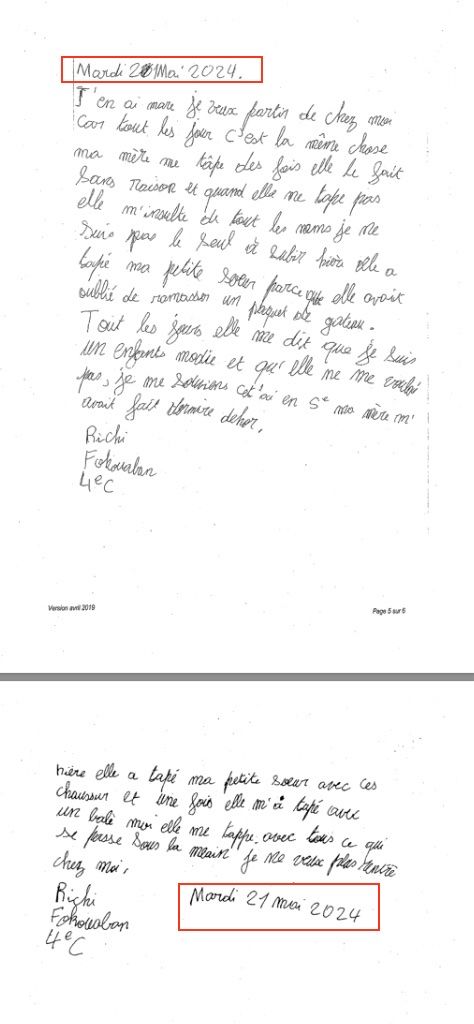 Mardi 21 Mai 2024.
J'en ai mare je veux partir de chez moi
Car tout les jour c'est la même chose
ma mère me tâpe des fois elle le fait
Sans raison et quand elle me tape pas
elle m'insulte de tout les noms je ne
suis pas le seul à subir hière elle a
tapé ma petite soeur parce que elle avait
oublié de ramasser un paquet de gateau.
Tout les jours elle me dit que je suis
un enfants modie et qu'elle ne me voulai
pas, je me souviens cét'ai en 5e ma mère m'
avait fait dormire dehor.
Richi
Fokouaban
4eC
Version avril 2019
Page 5 sur 6
hière elle a tapé ma petite soeur avec ces
chaussur et une fois elle m'a tapé avec
un balé moi elle me tappe avec tous ce qui
se passe sous la meain je ne veux plus rentré
chez moi.
Richi
Fokouaban
4eC
Mardi 21 mai 2024